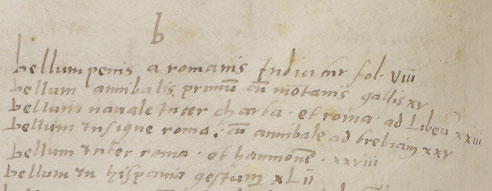 b
bellum penis a romanis Indicitur fol. VIII
bellum annibalis primū cū motanis gallis XV
bellum navale Inter charta. et roma. ad Libeū XXIII
bellum Insigne roma. cū annibale ad trebiam XXV
bellum Inter roma. et hannonē. XXVIII
bellum In hispania gestum XLII